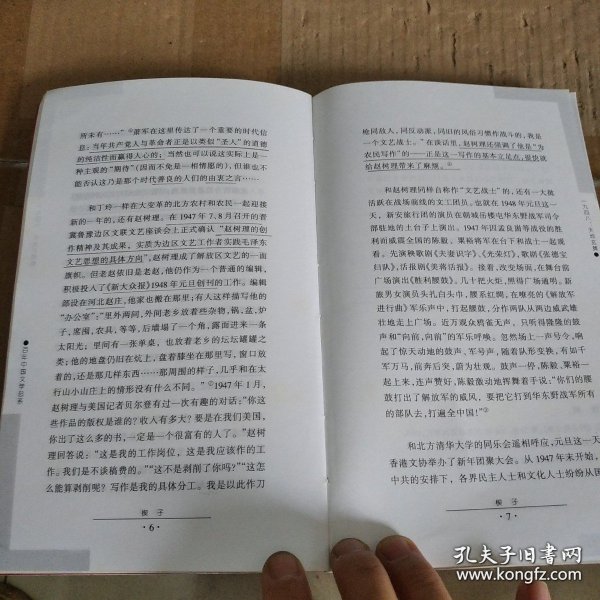 所未有……”①萧军在这里传达了一个重要的时代信
息：当年共产党人与革命者正是以类似“圣人”的道德
的纯洁性而赢得人心的；当然也可以说这实际上是一
种主观的“期待”(因而不免是一相情愿的)，但谁也不
能否认这乃是那个时代善良的人们的由衷之言……
和丁玲一样在大变革的北方农村和农民一起迎接
新的一年的，还有赵树理。在1947年7、8月召开的晋
冀鲁豫边区文联文艺座谈会上正式确认“赵树理的创
作精神及其成果，实质为边区文艺工作者实践毛泽东
文艺思想的具体方向”，赵树理成了解放区文艺的一面
旗帜。但老赵依旧是老赵，他仍作为一个普通的编辑，
积极投入了《新大众报》1948年元旦创刊的工作。编辑
部设在河北赵庄，他家也搬在那里；有人这样描写他的
“办公室”：“里外两间，外间老乡放着些杂物，锅、盆、炉
子、窝囤、农具，等等，后墙塌了一个角，露而进来一条
太阳光；里间有一张单桌，也放着老乡的坛坛罐罐之
类；他的地盘仍旧在炕上，盘着膝坐在那里写，窗口放
着的，还是那几样东西……那周围的样子，几乎和在太
行山小山庄上的情形没有什么不同。”①1947年1月，
赵树理与美国记者贝尔登有过一次有趣的对话：“你这
些作品的版权是谁的？收人有多大？要是在我们美国，
你出了这么多的书，一定是一个很富有的人了。”赵树
理回答说：“这是我的工作岗位，这是我应该作的工
作。我们是不谈稿费的。”“这不是剥削了你吗？”“这怎
么能算剥削呢？写作是我的具体分工。我是以此作刀
楔 子
·6·
百年中国文学总系
枪同敌人，同反动派，同旧的风俗习惯作战斗的，我是
一个文艺战士。”在谈话里，赵树理还强调了他是“为
农民写作”的——正是这一写作的基本立足点，很快就
给赵树理带来了麻烦。①
和赵树理同样自称作“文艺战士”的，还有一大批
活跃在战场前线的文工团员。也就在1948年元旦这一
天，新安旅行团的演员在朝城岳楼屯华东野战军司令
部驻地的土台子上演出。1947年因孟良崮等战役的胜
利而威震全国的陈毅、粟裕将军在台下和战士一起观
看。先演秧歌剧《夫妻识字》、《光荣灯》，歌剧《张德宝
归队》，活报剧《美蒋活报》。接着，改变场面，在舞台前
广场演出《胜利腰鼓》。几十把火炬，照得广场通明。新
旅男女演员头扎白头巾，腰系红绸，在嘹亮的《解放军
进行曲》军乐声中，打起腰鼓，分作两队从两边威武雄
壮地走上广场。近万观众鸦雀无声，只听得隆隆的鼓
声和“向前，向前”的军乐呼唤。忽然场上一声号令，响
起了惊天动地的鼓声，军号声，随着队形变换，有如千
军万马，前奔后突，蔚为壮观。鼓声一停，陈毅、粟裕一
起上来，连声赞好，陈毅激动地挥舞着手说：“你们的腰
鼓打出了解放军的威风，要把它打到华东野战军所有
的部队去，打遍全中国！”②
和北方清华大学的同乐会遥相呼应，元旦这一天
香港文协举办了新年团聚大会。从1947年末开始，
中共的安排下，各界民主人士和文化人士纷纷从国
楔 子
·7·
一九四八：天地玄黄
孔夫子旧书网
www.kongfz.com